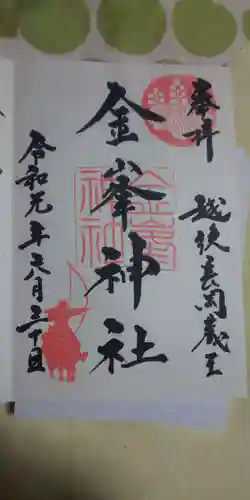 奉拝
越後長岡蔵王
金峯神社
令和元年八月三十日